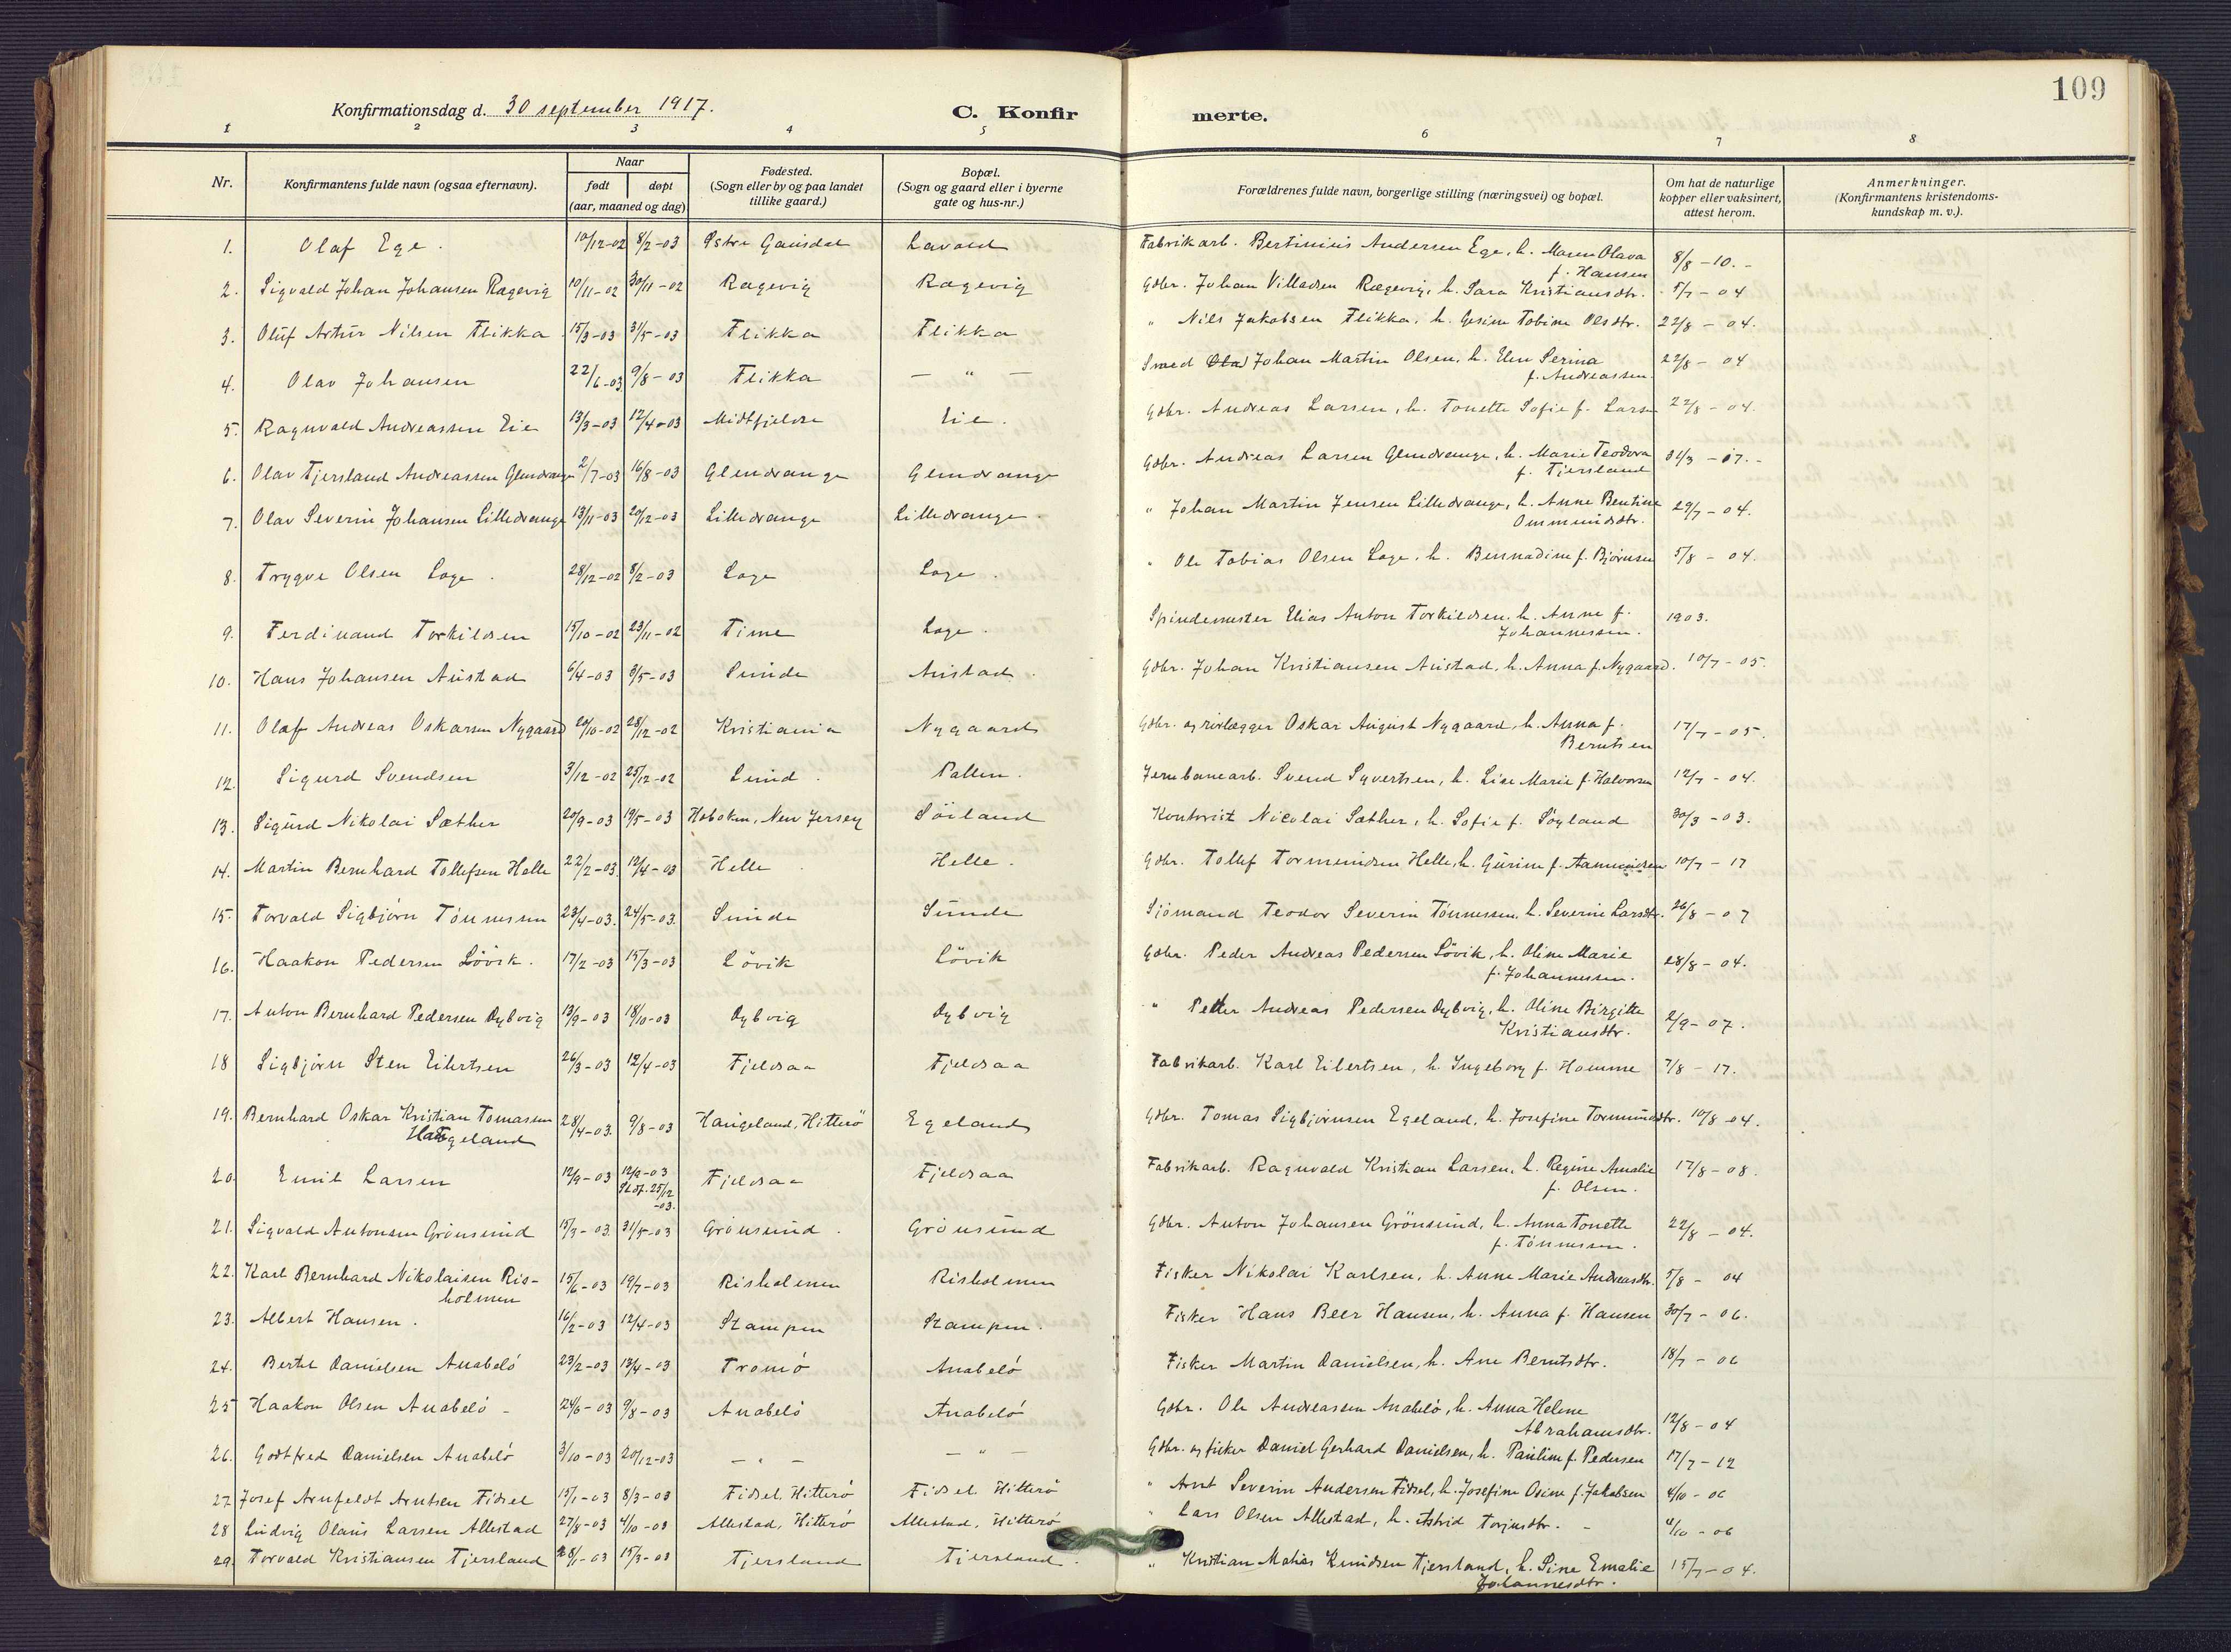 109
Konfirmationsdag d. 30 september 1917.
C. Konfirmerte.
1 2 3 4 5 6 7 8
Nr.
Konfirmantens fulde navn (ogsaa efternavn).
Naar
født | døpt
(aar, maaned og dag)
Fødested.
(Sogn eller by og paa landet
tillike gaard.)
Bopæl.
(Sogn og gaard eller i byerne
gate og hus-nr.)
Forældrenes fulde navn, borgerlige stilling (næringsvei) og bopæl.
Om hat de naturlige
kopper eller vaksinert,
attest herom.
Anmerkninger.
(Konfirmantens kristendoms-
kundskap m. v.).
1. Olaf Ege. 10/12-02 8/2-03 Østre Gausdal Lavold Fabrikarb. Bertinius Andersen Ege, h. Maren Olava 8/8-10.-
f. Hansen
2. Sigvald Johan Johansen Rægevig 10/11-02 30/11-02 Rægevig Rægevig Gdbr. Johan Villadsen Rægevig, h. Sara Kristiansdtr. 5/7-04
3. Oluf Artur Nilsen Flikka 15/3-03 31/5-03 Flikka Flikka " Nils Jakobsen Flikka, h. Gesine Tobine Olsdtr. 22/8-04.
4. Olav Johansen 22/6-03 9/8-03 Flikka — " — Smed Johan Martin Olsen, h. Elen Serina 22/8-04
f. Andreassen.
5. Ragnvald Andreassen Eie 13/3-03 12/4-03 Midtfjeldse Eie. Gdbr. Andreas Larsen, h. Tonette Sofie f. Larsen 22/8-04.
6. Olav Tjersland Andreassen Glendrange 2/7-03 16/8-03 Glendrange Glendrange Gdbr. Andreas Larsen Glendrange, h. Marie Teodora 31/3-17.-
f. Tjersland
7. Olav Severin Johansen Lilledrange 13/11-03 20/12-03 Lilledrange Lilledrange. " Johan Martin Jensen Lilledrange, h. Anne Bentine 29/7-04.
Ommundsdtr.
8. Trygve Olsen Loge. 28/12-02 8/2-03 Loge Loge. " Ole Tobias Olsen Loge, h. Bernadine f. Bjørnsen 5/8-04.
9. Ferdinand Torkildsen 15/10-02 23/11-02 Time Loge. Spindemester Elias Anton Torkildsen, h. Anne f. 1903.
Johannessen.
10. Hans Johansen Austad 6/4-03 3/5-03 Sunde Austad. Gdbr. Johan Kristiansen Austad, h. Anna f. Nygaard. 10/7-05.
11. Olaf Andreas Oskarsen Nygaard 20/10-02 28/12-02 Kristiania Nygaard Gdbr. og rørlægger Oskar August Nygaard, h. Anna f. 17/7-05.
Berntsen
12. Sigurd Svendsen 3/12-02 25/12-02 Lund. Pallen. Jernbanearb. Svend Syvertsen, h. Lise Marie f. Halvorsen 12/7-04.
13. Sigurd Nikolai Sæther 20/9-03 19/5-03 Hoboken, New Jersey Söiland Kontorist Nicolai Sæther, h. Sofie f. Søyland 30/3-03.
14. Martin Bernhard Tollefsen Helle 22/2-03. 12/4-03 Helle Helle. Gdbr. Tollef Tormundsen Helle, h. Gurine f. Aamundsen 10/7-17
15. Torvald Sigbjørn Tönnessen 23/4-03. 24/5-03. Sunde Sunde Sjömand Teodor Severin Tönnessen, h. Severine Larsdtr. 26/8-07
16. Haakon Pedersen Lövik. 17/2-03 15/3-03 Lövik Lövik Gdbr. Peder Andreas Pedersen Lövik, h. Oline Marie 28/8-04.
f. Johannessen.
17. Anton Bernhard Pedersen Dybvig 13/9-03 18/10-03 Dybvig Dybvig " Petter Andreas Pedersen Dybvig, h. Oline Birgitte 2/9-07.
Kristiansdtr.
18 Sigbjørn Sten Eilertsen 26/3-03 12/4-03 Fjeldsaa Fjeldsaa Fabrikarb. Karl Eilertsen, h. Ingeborg f. Homme 7/8-17.
19. Bernhard Oskar Kristian Tomassen 28/4-03. 9/8-03 Haugeland, Hitterö Egeland Gdbr. Tomas Sigbjørnsen Egeland, h. Josefine Tormundsdtr. 10/8-04.
Haugeland
20 Emil Larsen 12/9-03 12/9-03 Fjeldsaa Fjeldsaa Fabrikarb. Ragnvald Kristian Larsen, h. Regine Amalie 17/8-08.
St.df. 25/12 f. Olsen.
-03.
21. Sigvald Antonsen Grönsund 15/3-03. 31/5-03 Grönsund. Grönsund Gdbr. Anton Johansen Grönsund, h. Anna Tonette 22/8-04.
f. Tönnessen.
22. Karl Bernhard Nikolaisen Ris- 15/6-03 19/7-03 Risholmen Risholmen Fisker Nikolai Karlsen, h. Anne Marie Andreasdtr. 5/8-04
holmen
23. Albert Hansen. 16/2-03 12/4-03 Stampen Stampen. Fisker Hans Beer Hansen, h. Anna f. Hansen 30/7-06.
24. Bertel Danielsen Anabelö 23/2-03 13/4-03 Tromö Anabelö Fisker Martin Danielsen, h. Ane Berntsdtr. 18/7-06
25 Haakon Olsen Anabelö - 24/6-03 9/8-03 Anabelö Anabelö Gdbr. Ole Andreassen Anabelö, h. Anna Helene 12/8-04
Abrahamsdtr.
26. Godtfred Danielsen Anabelö 3/10-03 20/12-03 — " — — " — Gdbr. og fisker Daniel Gerhard Danielsen, h. Pauline f. Pedersen 17/7-12
27. Josef Arnfeldt Arntsen Fidsel 15/1-03 8/3-03 Fidsel, Hitterö Fidsel Hitterö " Arnt Severin Andersen Fidsel, h. Josefine Osine f. Jakobsen 4/10-06
28 Ludvig Olaus Larsen Allestad 27/8-03 4/10-03 Allestad, Hitterö Allestad, Hitterö " Lars Olsen Allestad, h. Astrid Torjusdtr. - 4/10-06
29. Torvald Kristiansen Tjersland 28/1-03 15/3-03 Tjersland Tjersland. " Kristian Matias Knudsen Tjersland, h. Sine Emalie 15/7-04.
Johannesdtr.